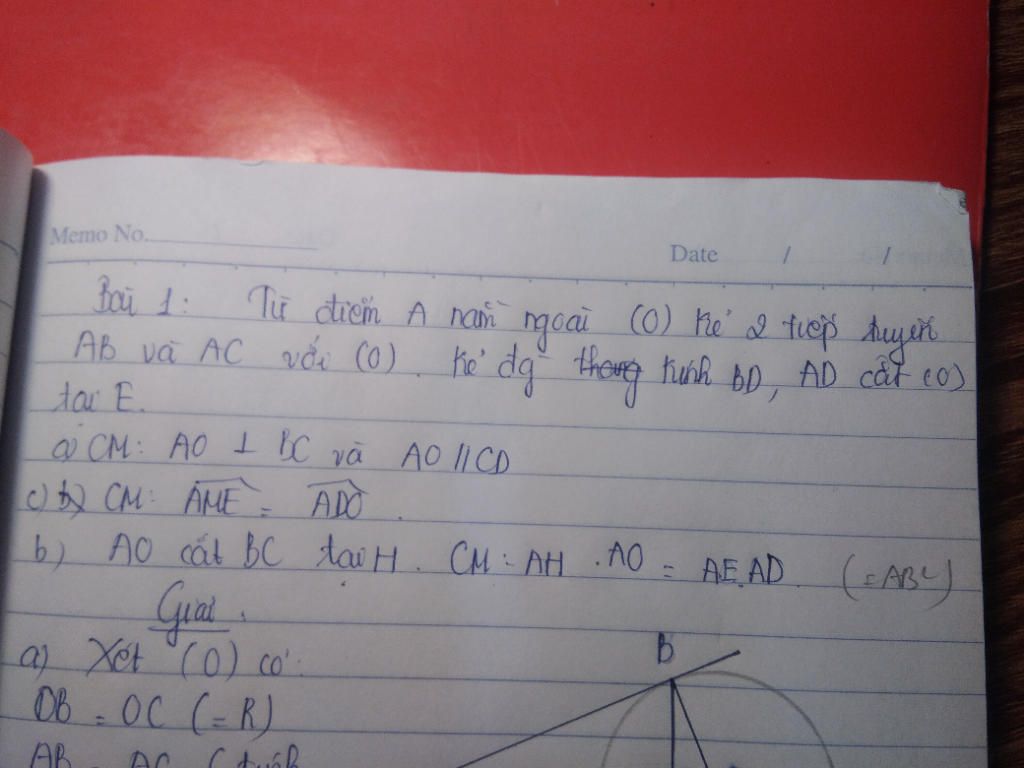 Memo No.
Date / /
Bài 1: Từ điểm A nằm ngoài (O) kẻ 2 tiếp tuyến
AB và AC với (O). Kẻ đg kính BD, AD cắt (O)
tại E.
a) CM: AO ⊥ BC và AO // CD
c) b) CM: AME = ADO.
b) AO cắt BC tại H. CM: AH . AO = AE.AD. (=AB²)
Giải.
a) Xét (O) có:
OB = OC (=R)
AB = AC (
B